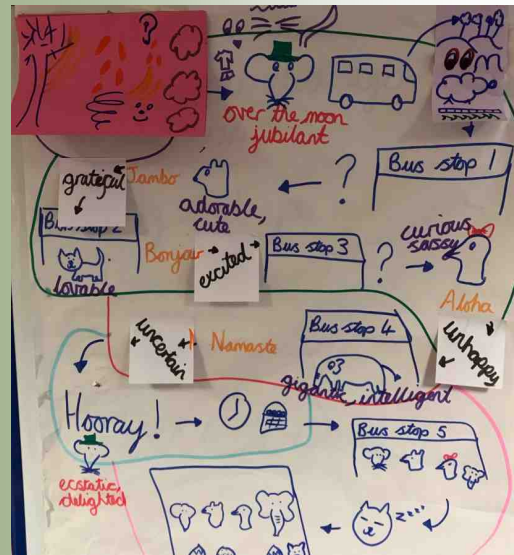 ?
over the moon
jubilant
Bus stop 1
grateful
Jambo
?
adorable,
cute
curious
sassy
Bus stop 2
lovable
Bonjour
excited
Bus stop 3
?
Aloha
unhappy
uncertain
Namaste
Bus stop 4
gigantic, intelligent
Hooray!
Bus stop 5
ecstatic,
delighted
zzzz